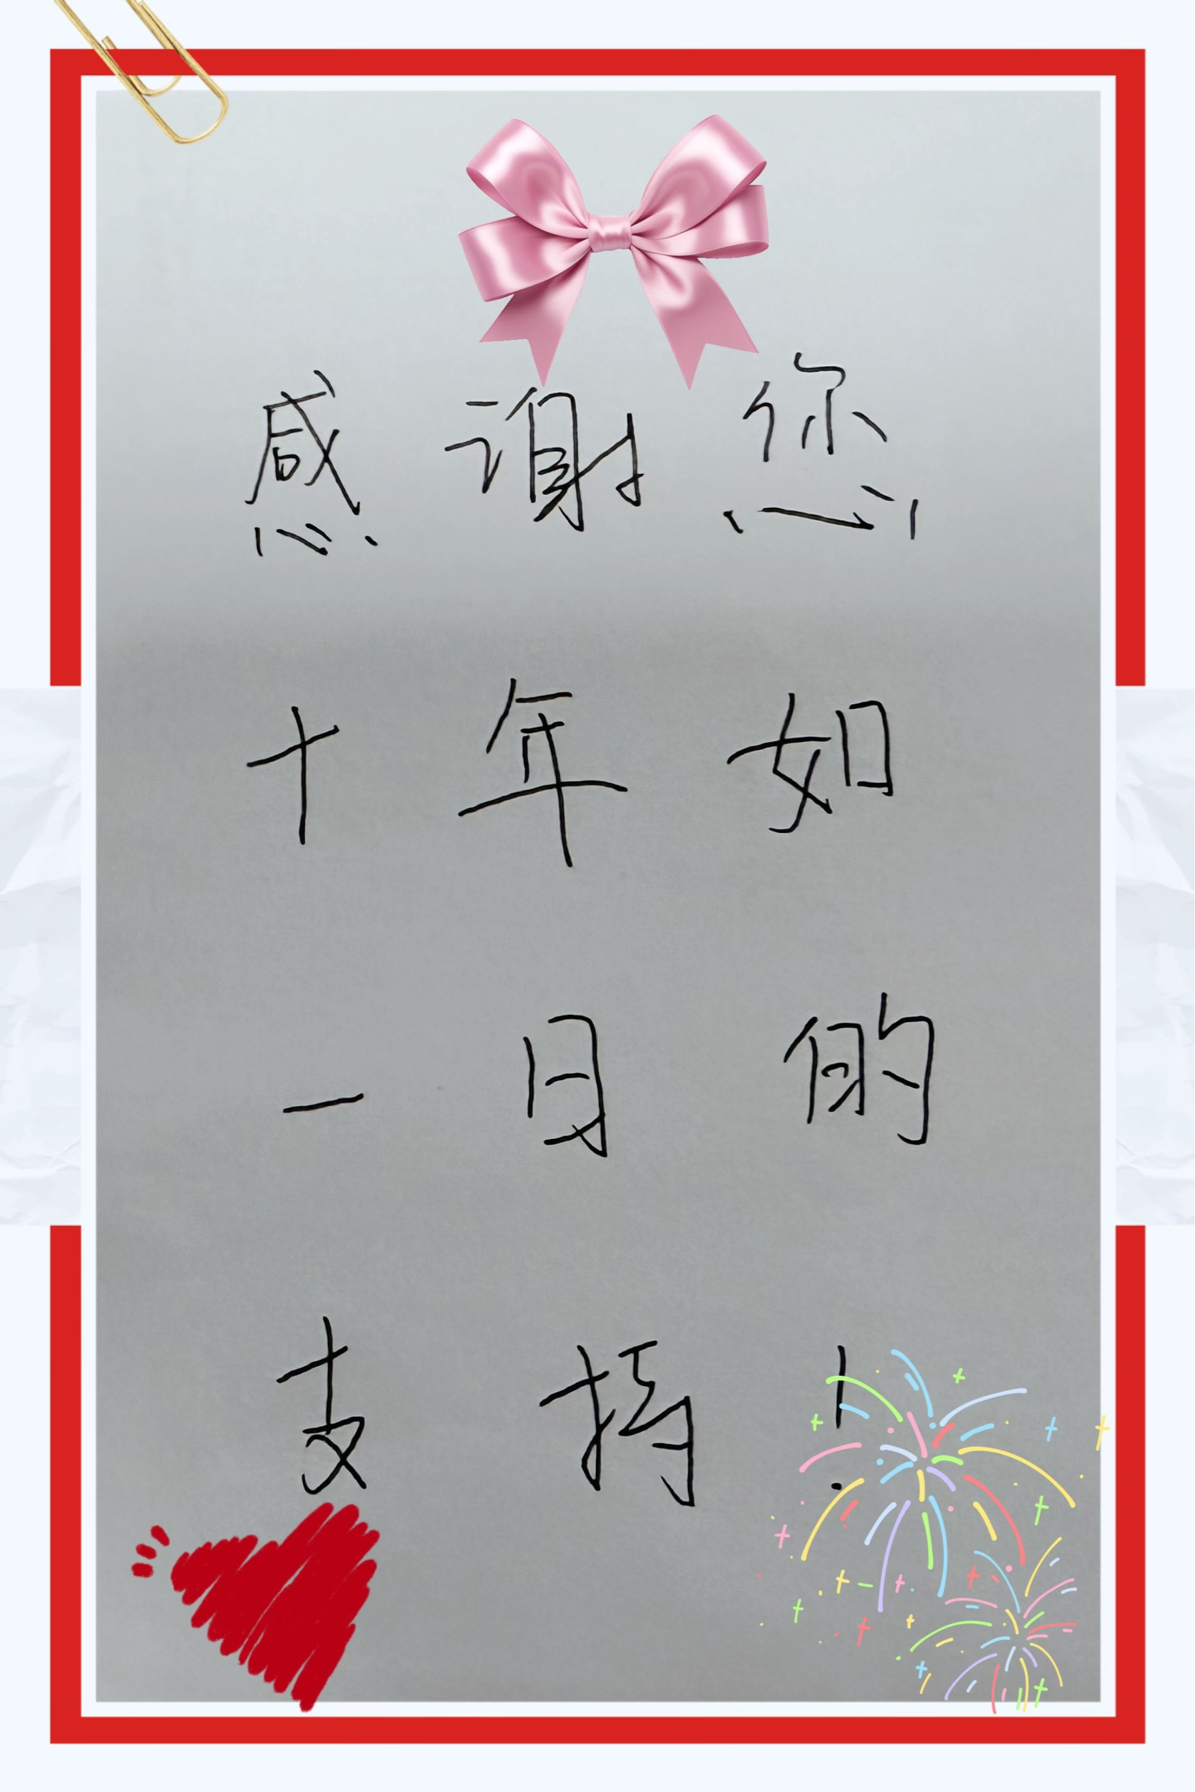 感谢您
十年如
一日的
支持!